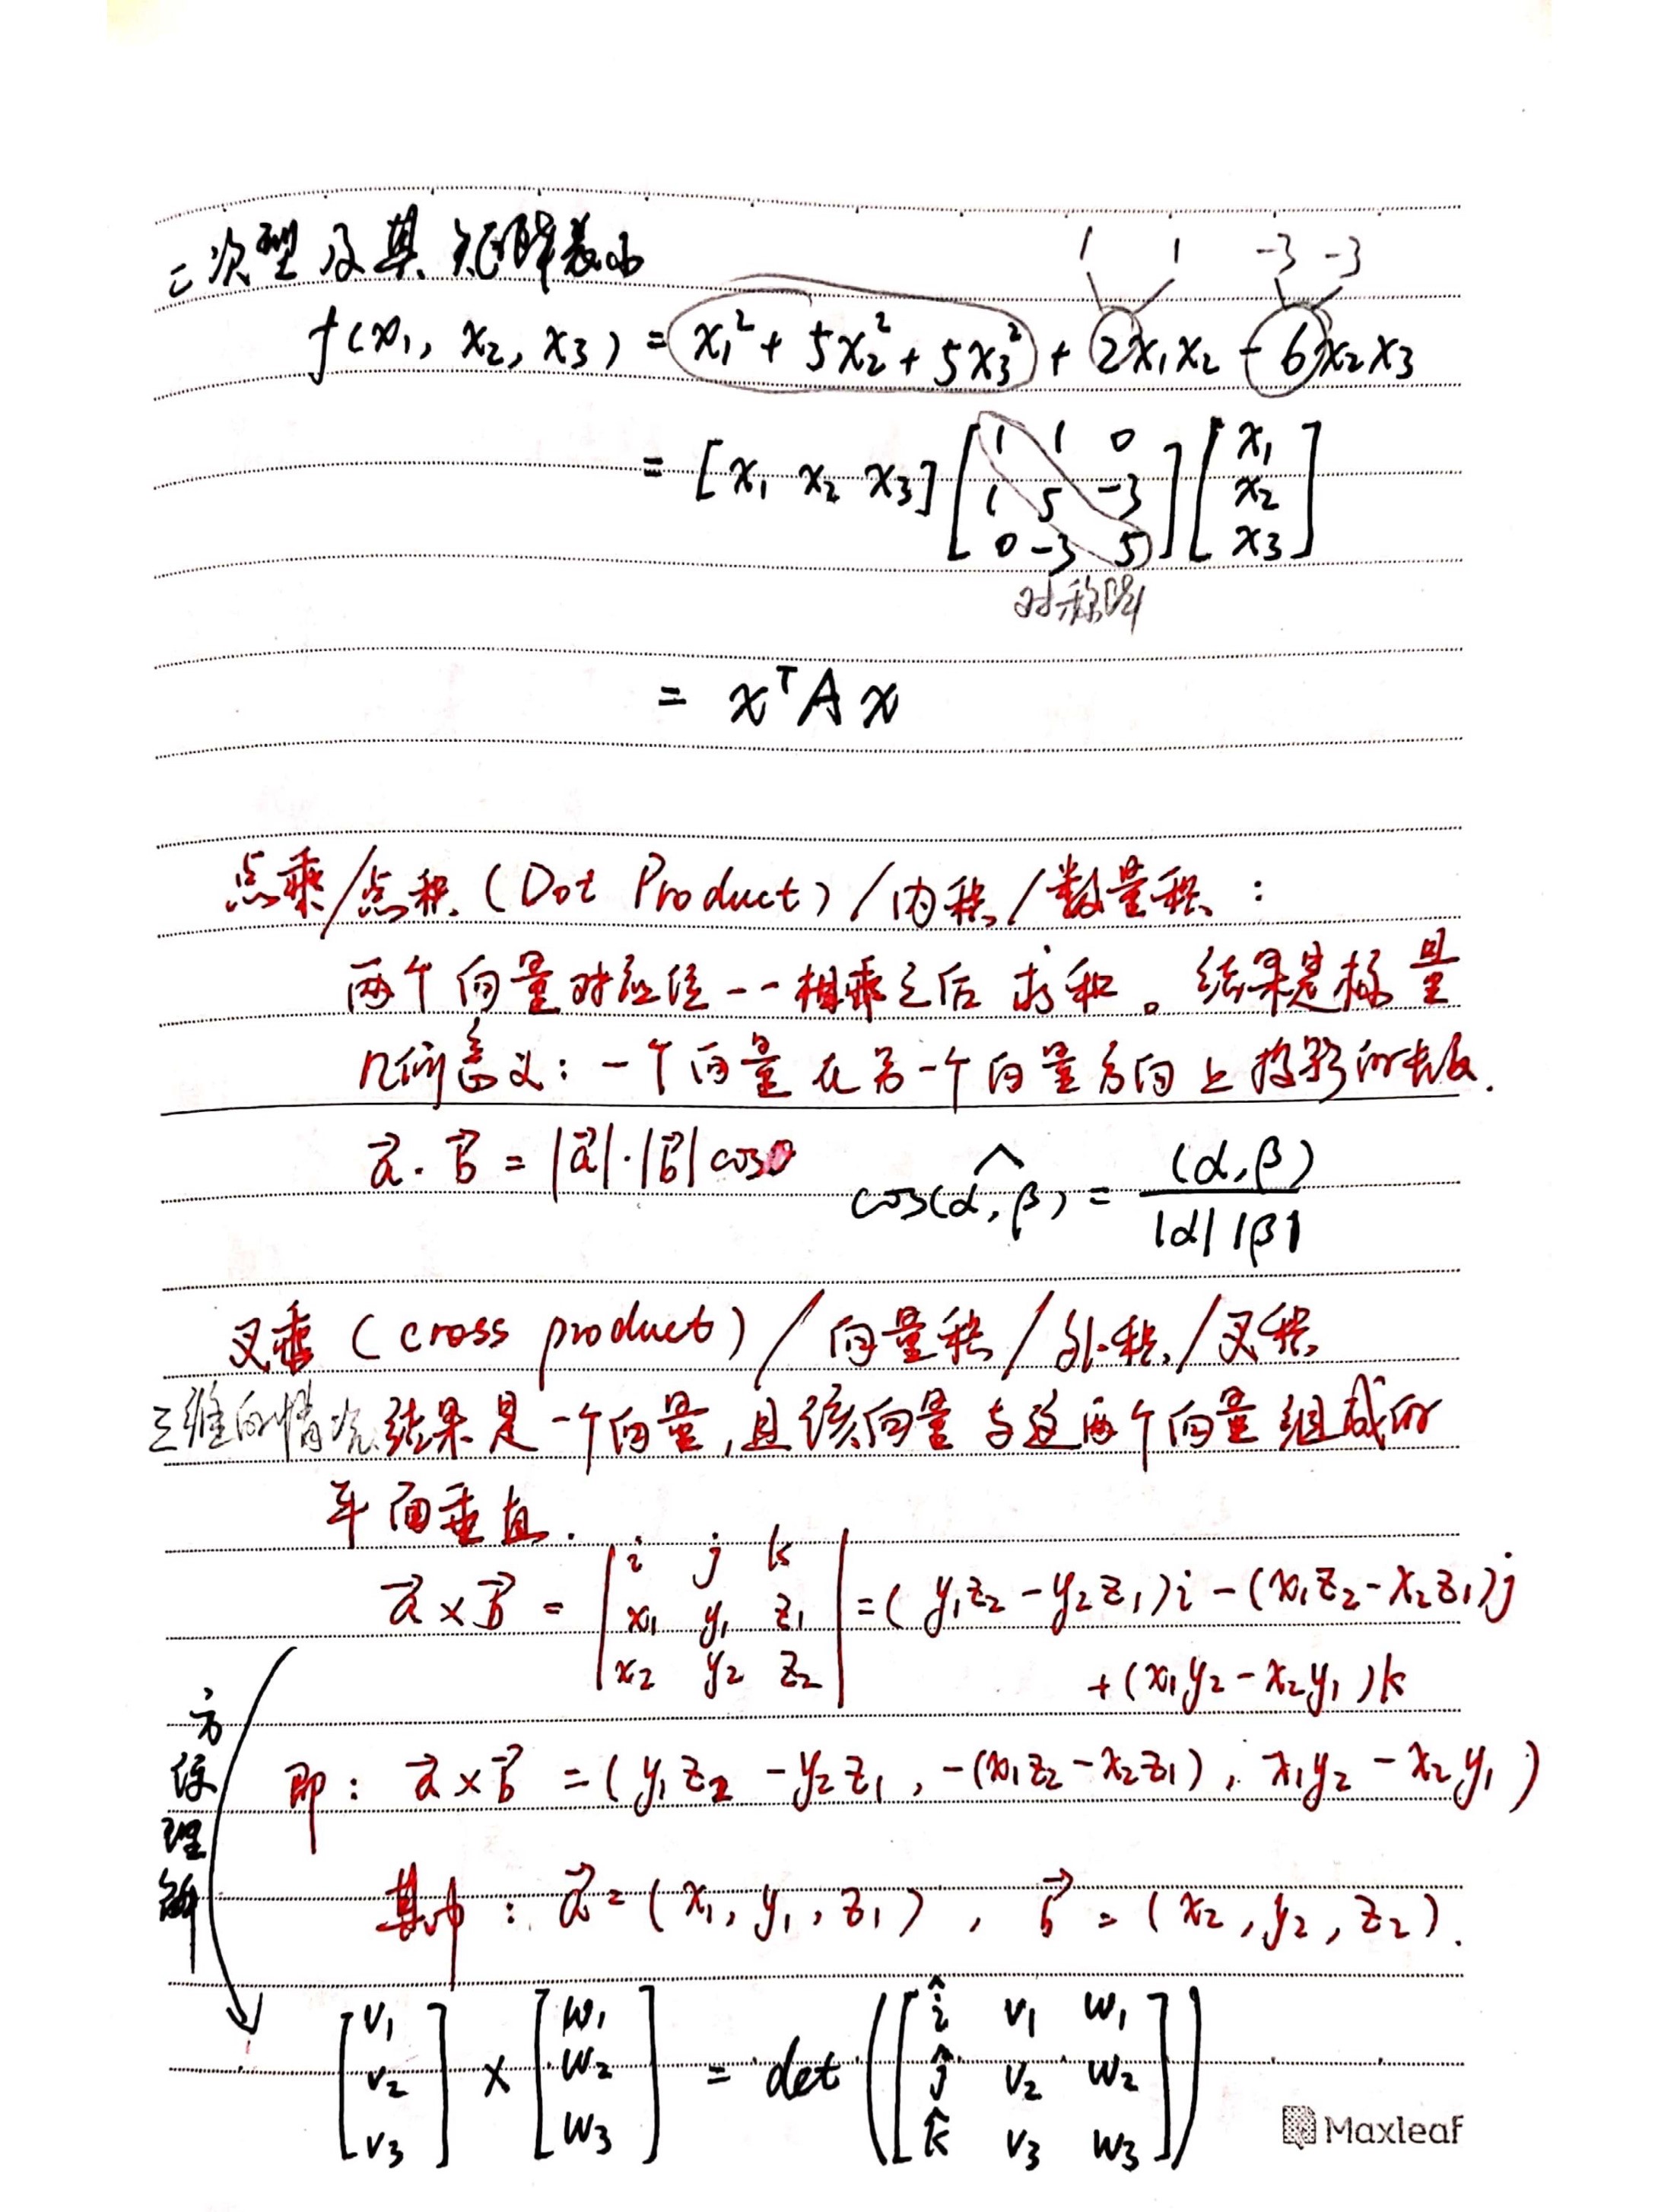 二次型及其矩阵表示
1 1 -3 -3
f(x₁, x₂, x₃) = x₁² + 5x₂² + 5x₃² + 2x₁x₂ - 6x₂x₃
= [x₁ x₂ x₃] [1 1 0; 1 5 -3; 0 -3 5] [x₁; x₂; x₃]
对称阵
= xᵀAx
点乘/点积 (Dot Product) / 内积 / 数量积 :
两个向量对应位一一相乘之后求和。结果是标量
几何意义: 一个向量在另一个向量方向上投影的长度.
a⃗ · b⃗ = |a⃗|·|b⃗| cosθ
cos(α,^β) = (α,β) / |α| |β|
叉乘 (cross product) / 向量积 / 外积 / 叉积
三维的情况 结果是一个向量, 且该向量与这两个向量组成的
平面垂直.
a⃗ × b⃗ = |i j k; x₁ y₁ z₁; x₂ y₂ z₂| = (y₁z₂ - y₂z₁)i - (x₁z₂ - x₂z₁)j
+ (x₁y₂ - x₂y₁)k
方便理解
即: a⃗ × b⃗ = (y₁z₂ - y₂z₁, -(x₁z₂ - x₂z₁), x₁y₂ - x₂y₁)
其中: a⃗ = (x₁, y₁, z₁), b⃗ = (x₂, y₂, z₂).
[v₁; v₂; v₃] × [w₁; w₂; w₃] = det([î v₁ w₁; ĵ v₂ w₂; k̂ v₃ w₃])
Maxleaf